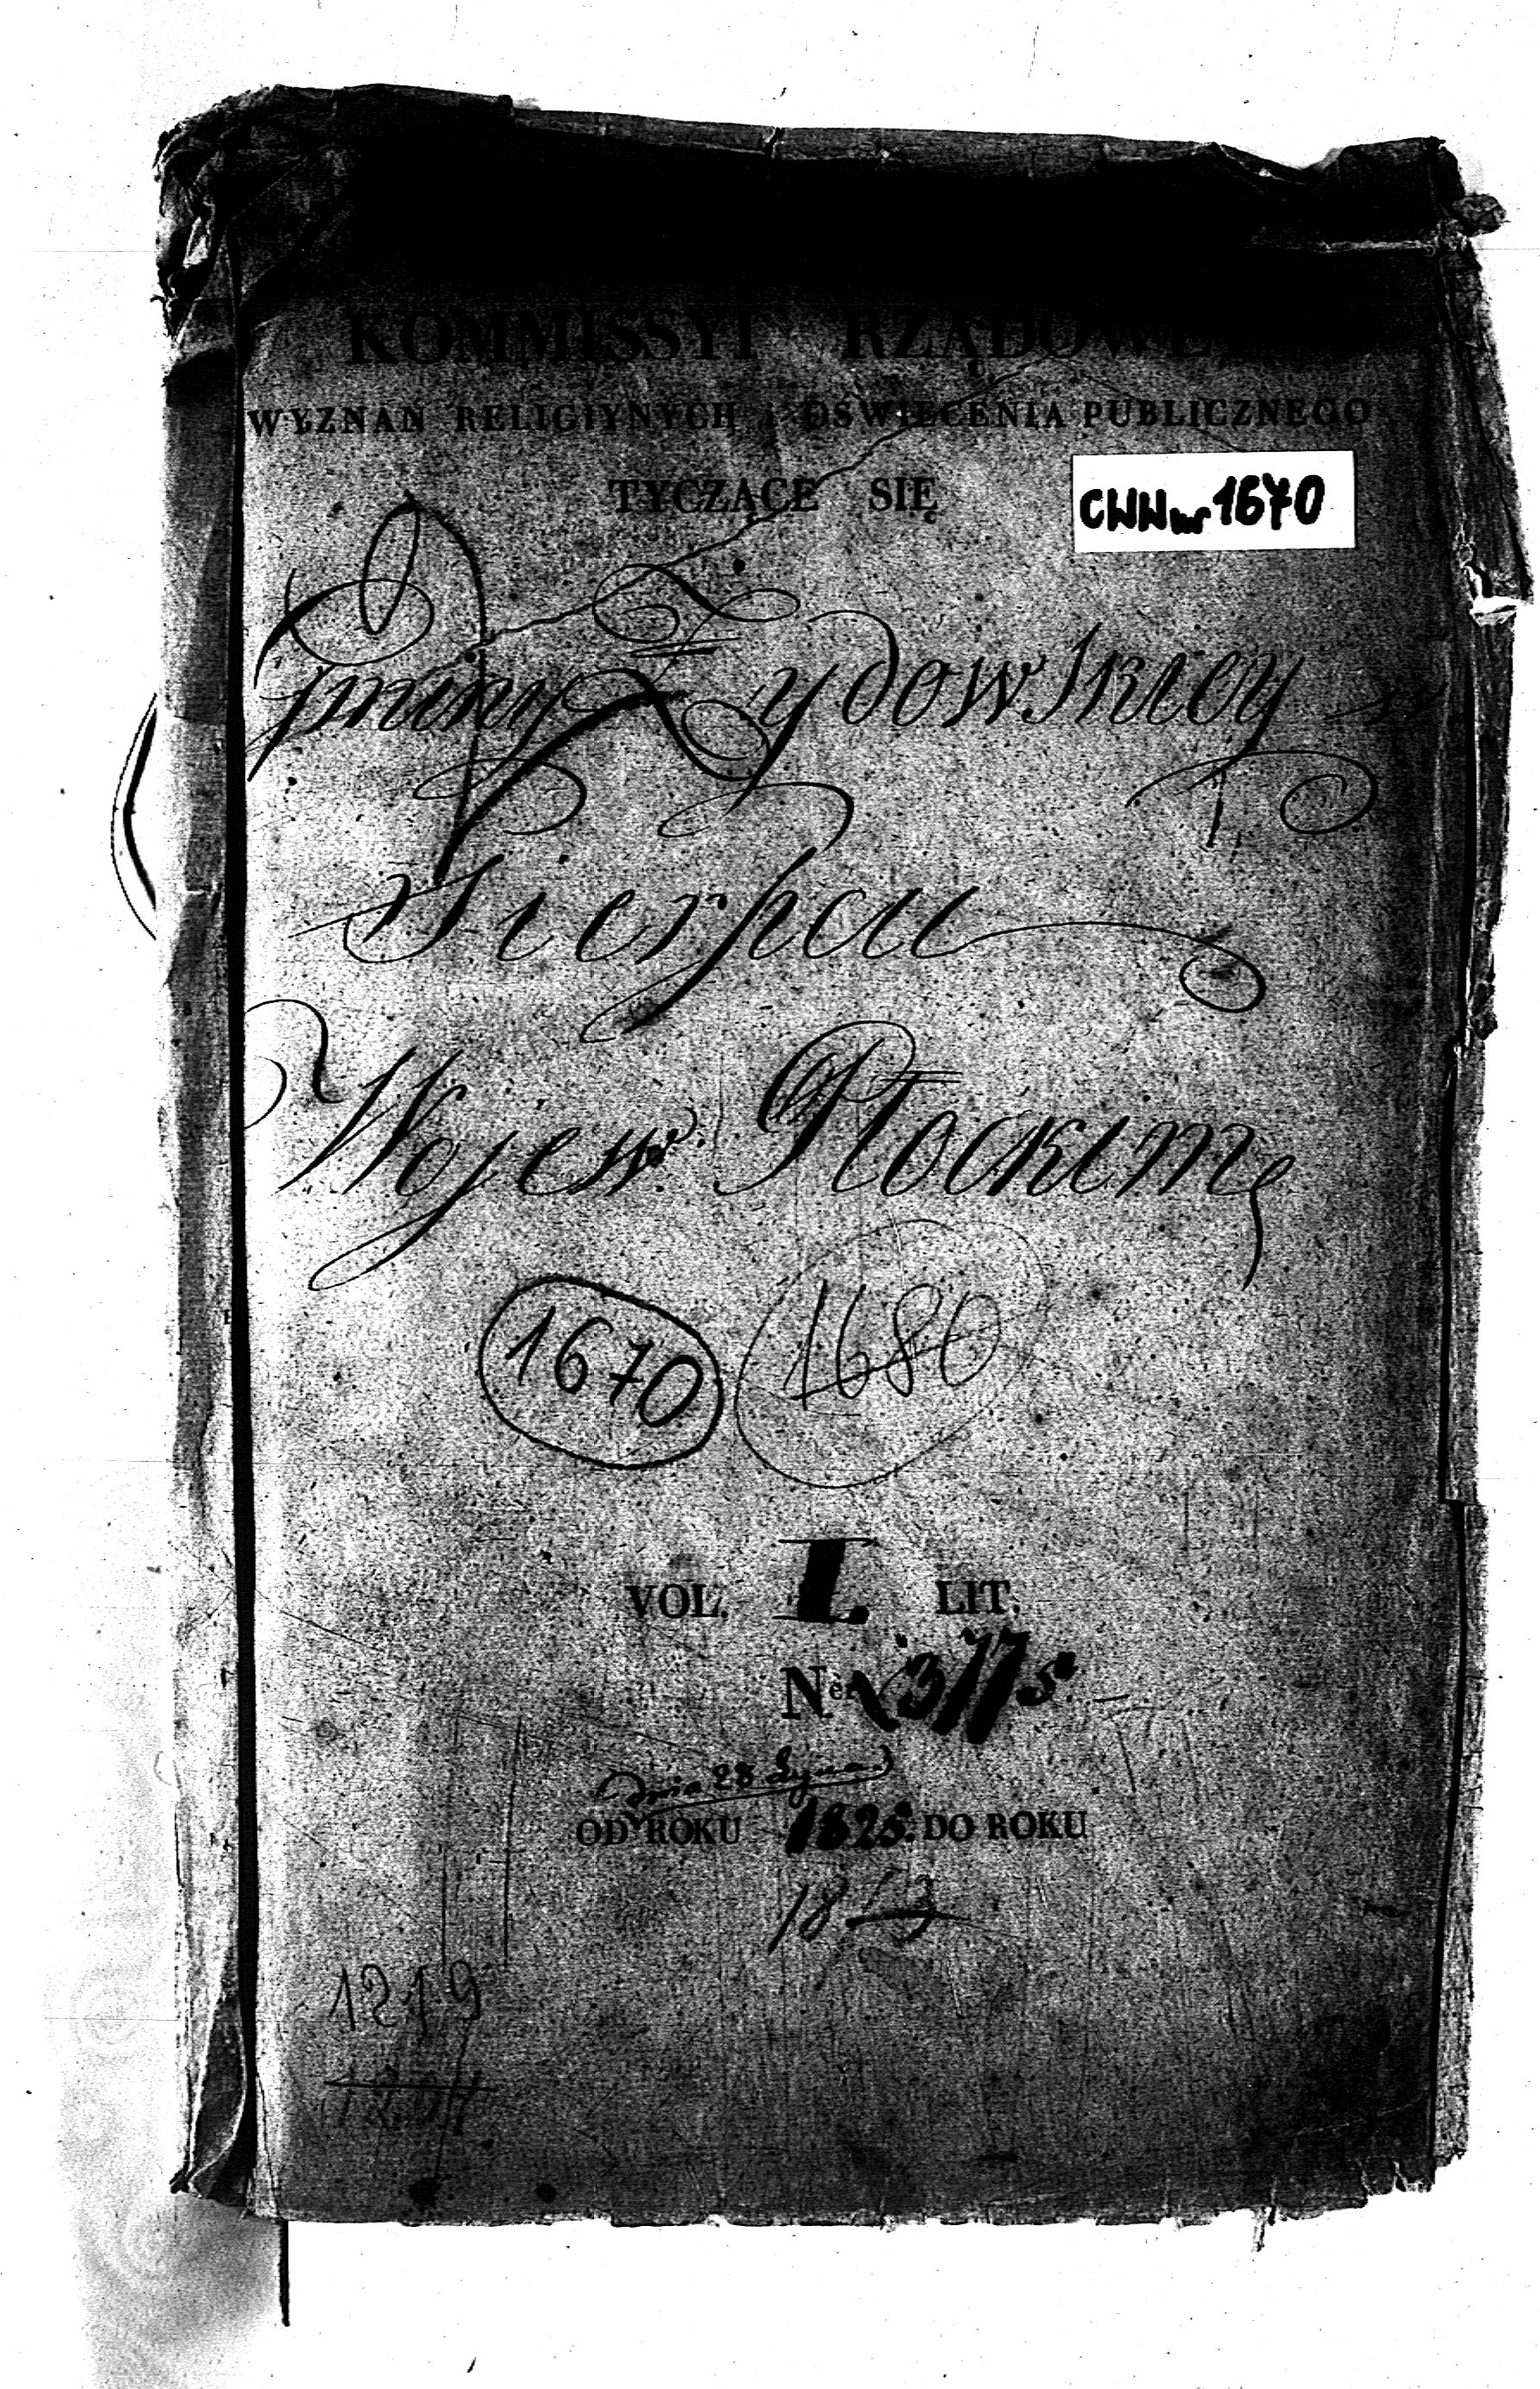 KOMMISSYI RZĄDOWEY
WYZNAŃ RELIGIYNYCH i OŚWIECENIA PUBLICZNEGO
TYCZĄCE SIĘ
CWW nr 1670
Gminy Żydowskiey w
Sierpcu
Wojew. Płockim
1670 1680
VOL. I. LIT.
Nèr
OD ROKU 1825. DO ROKU
18
1219